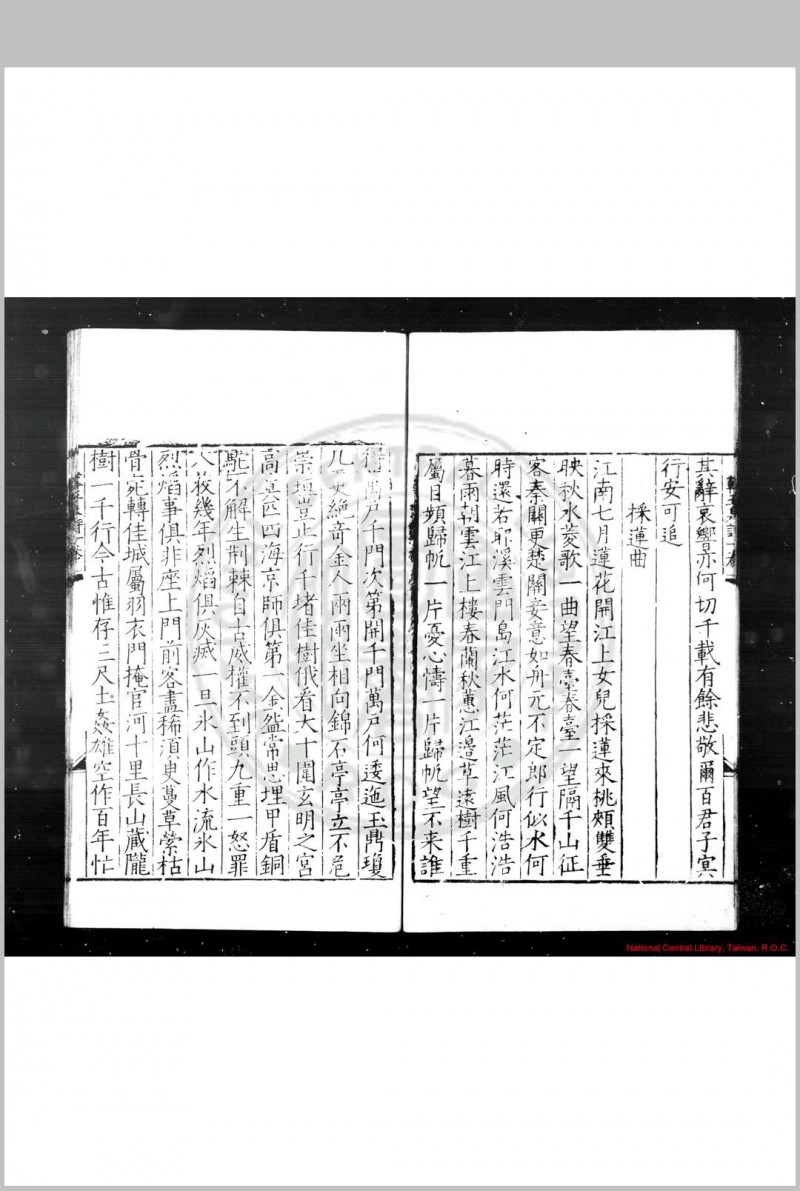 其辭哀響亦何切千載有餘悲敬爾百君子冥
行安可追
採蓮曲
江南七月蓮花開江上女兒採蓮來桃頰雙垂
映秋水菱歌一曲望春臺春臺一望隔千山征
客秦關更楚關妾意如舟元不定郎行似水何
時還若耶溪雲門島江水何茫茫江風何浩浩
暮雨朝雲江上樓春蘭秋蕙江邊草遠樹千重
屬目頻歸帆一片憂心懤一片歸帆望不来誰
萬戶千門次第開千門萬戶何逶迤玉鼎瓊
几更絶竒金人兩兩坐相向錦石亭亭立不危
崇墉豈止行千堵佳樹俄看大十圍玄明之宮
高莫匹四海京師俱第一金盌常思埋甲盾銅
駝不解生荆棘自古威權不到頭九重一怒罪
人收幾年烈熖俱灰滅一旦氷山作水流氷山
烈熖事俱非座上門前客盡稀酒叟蔓草縈枯
骨宛轉佳城屬羽衣門掩官河十里長山藏隴
樹一千行今古惟存三尺土姦雄空作百年忙
National Central Library, Taiwan, R.O.C.